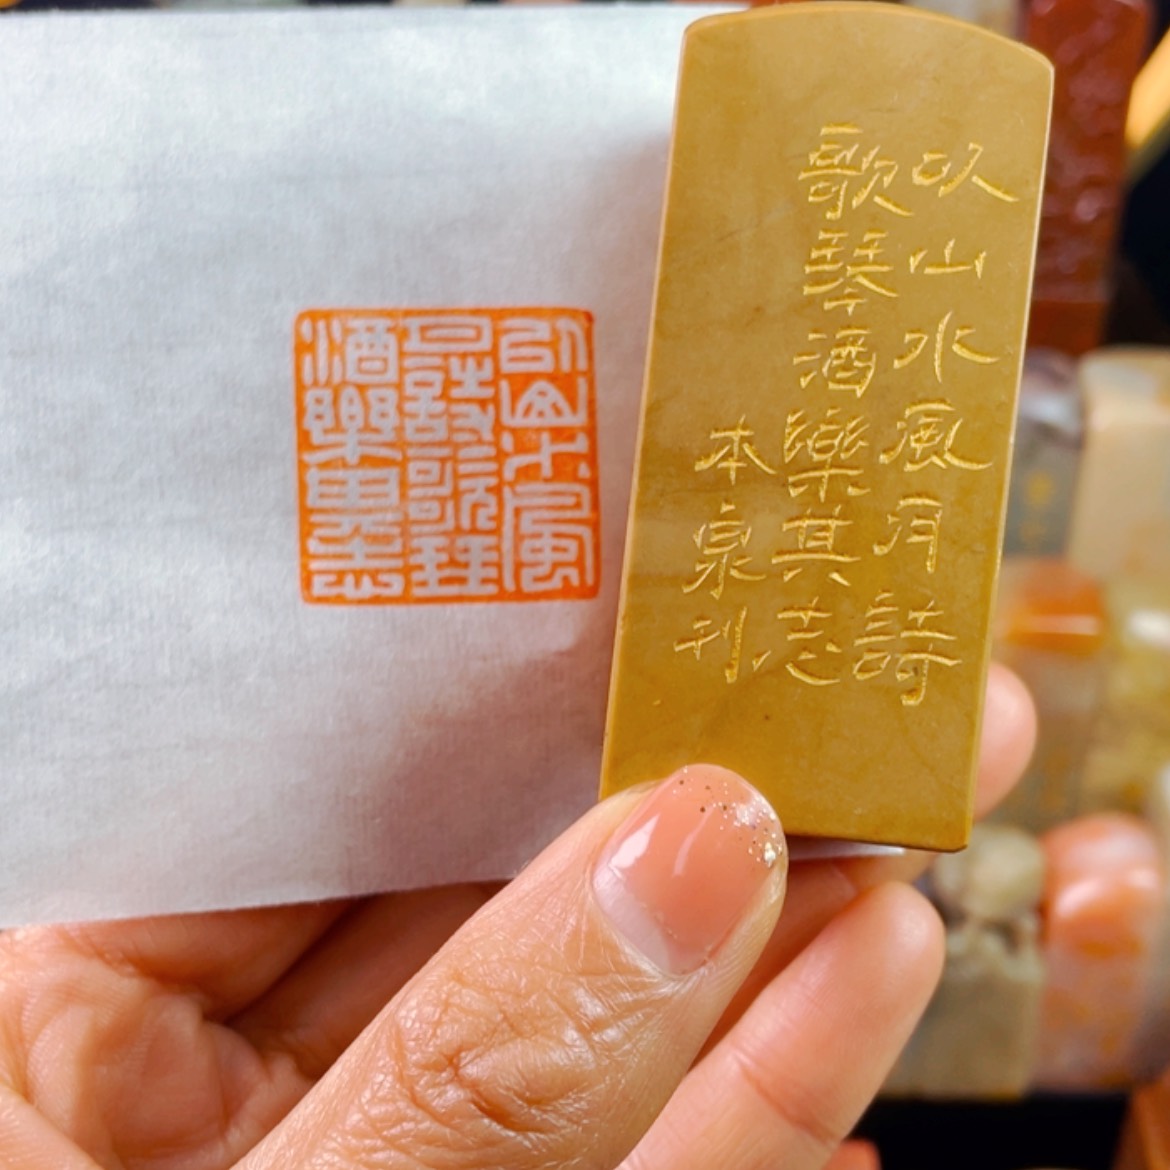 以山水風月詩
歌琴酒樂其志
本泉刊
以山水風
月詩歌琴
酒樂其志